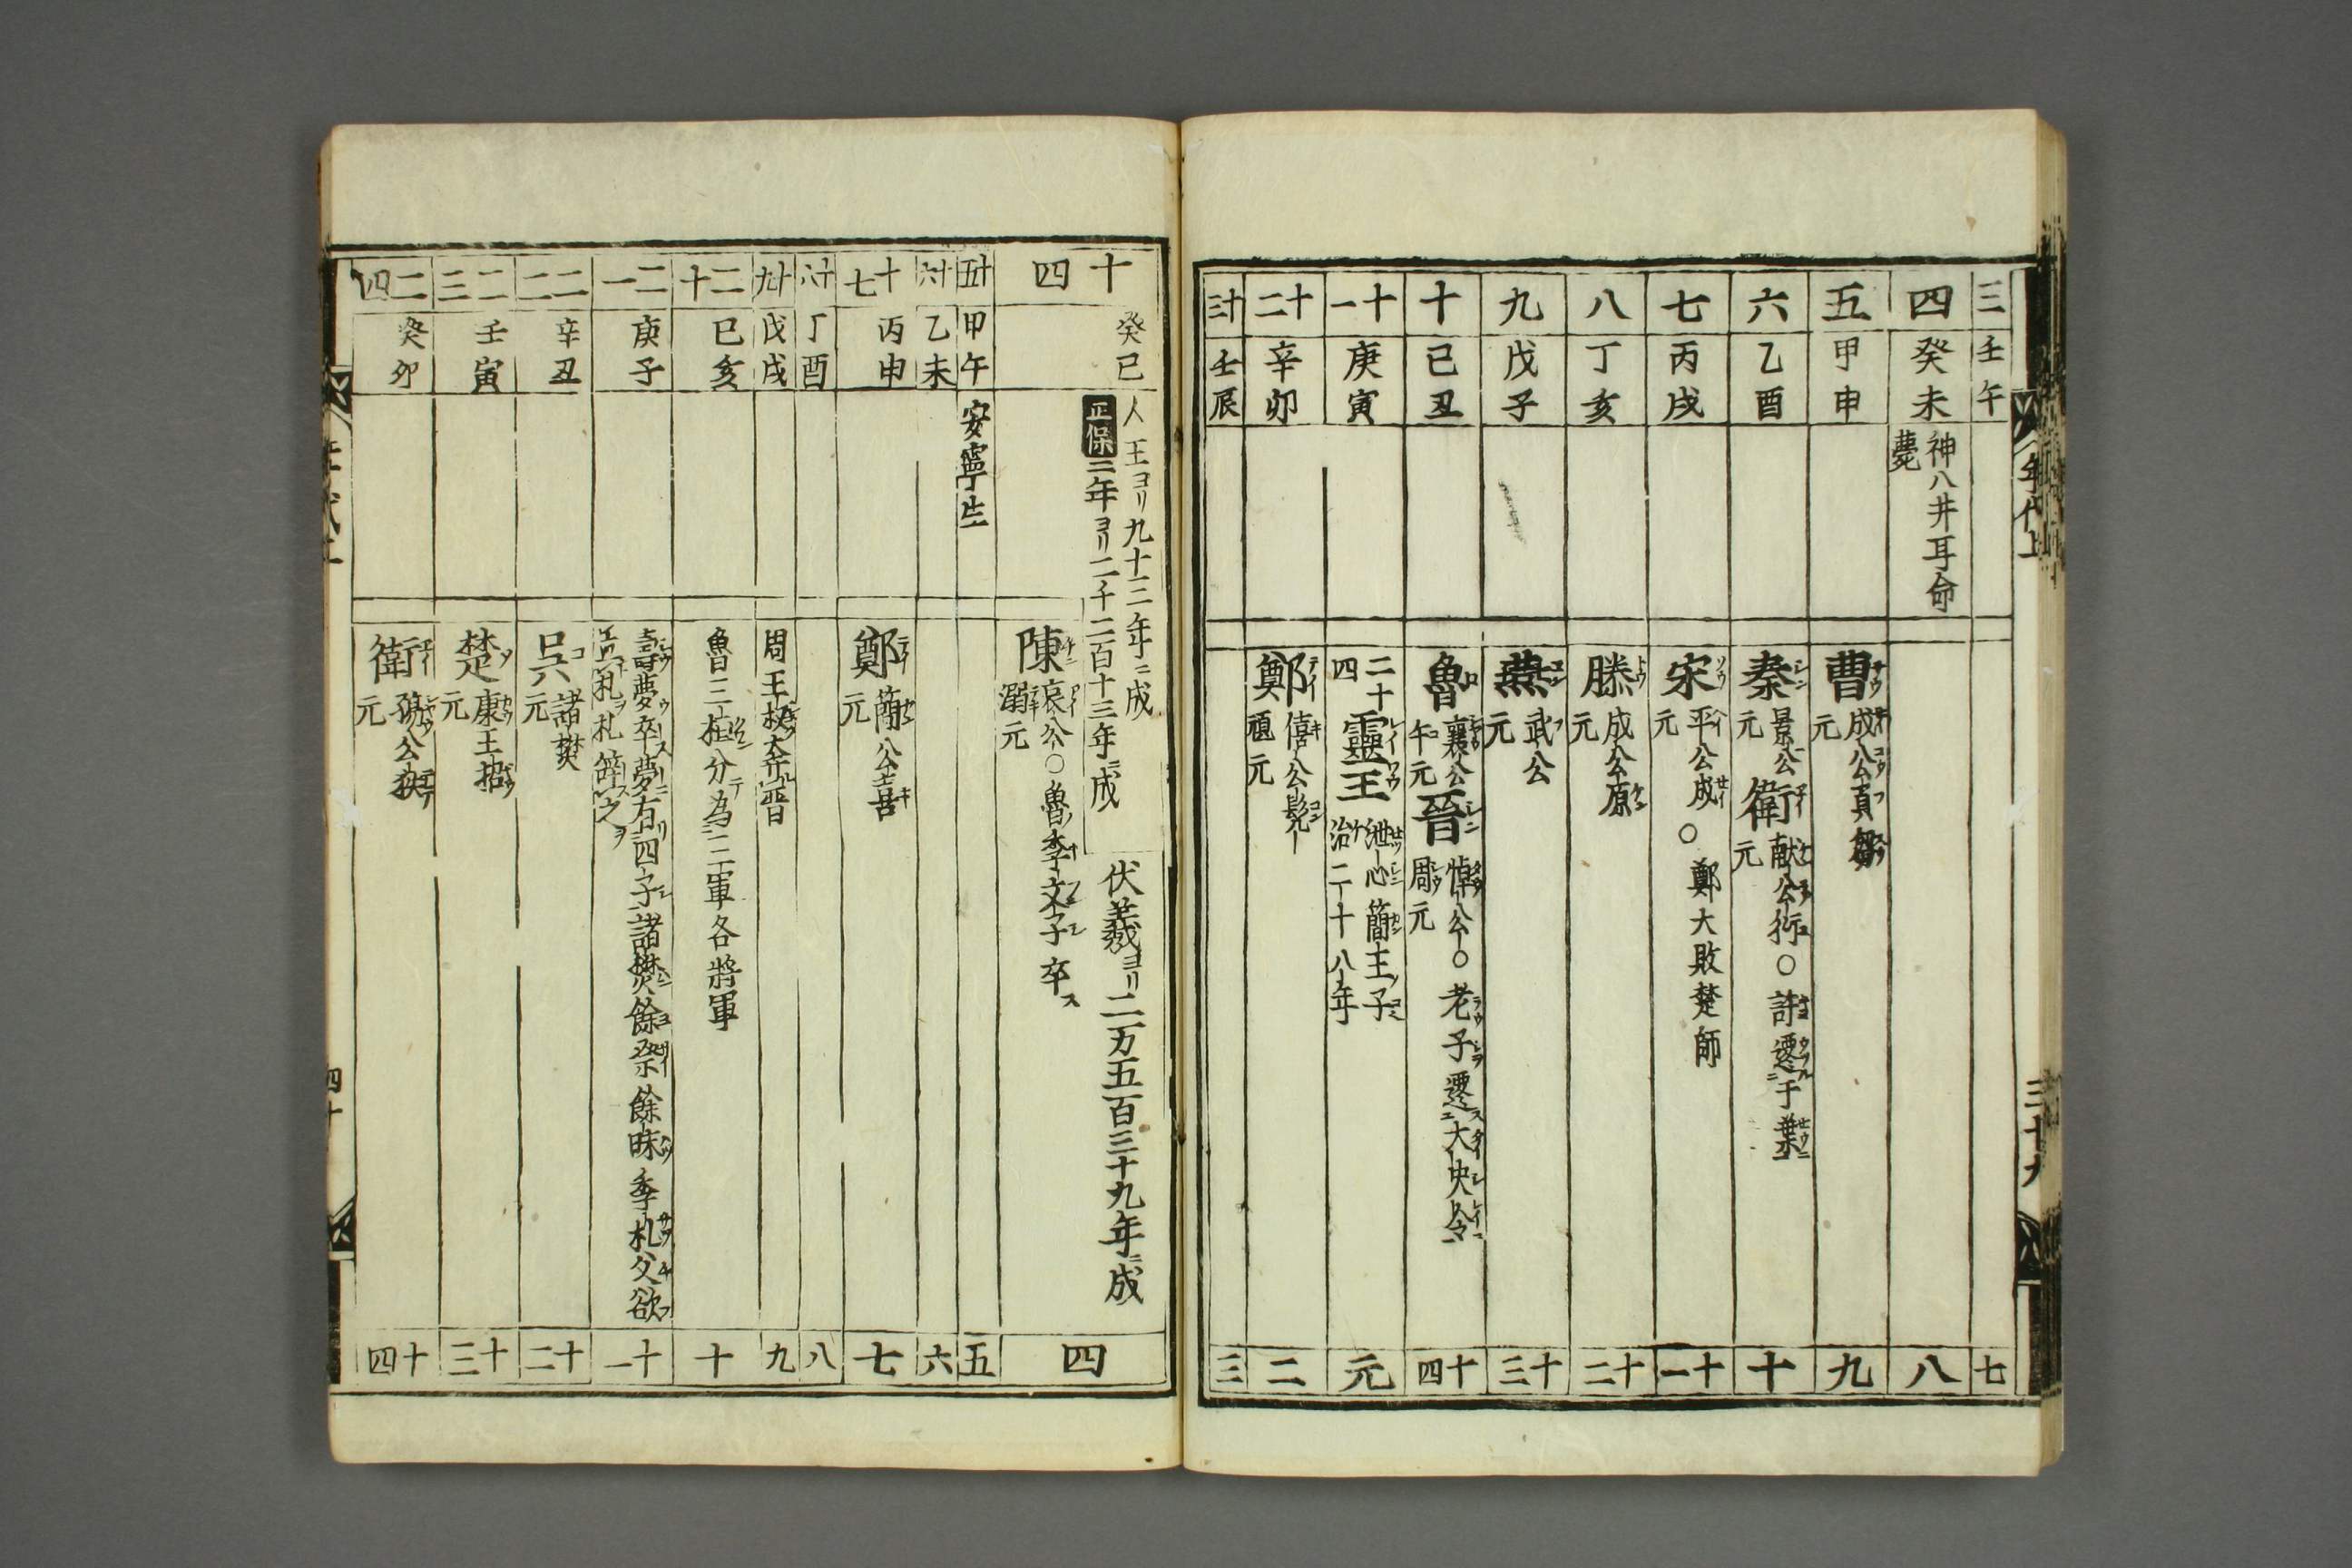 年代上
三十九
三
壬午
七
四
癸未
神八井耳命
薨
八
五
甲申
曹 成公負芻
元
九
六
乙酉
秦 景公
元
衛 献公衎〇許遷于葉
元
十
七
丙戌
宋 平公成〇鄭大敗楚師
元
十一
八
丁亥
滕 成公原
元
十二
九
戊子
燕 武公
元
十三
十
己丑
魯 襄公
午元
晉 悼公〇老子遷大史令
周元
十四
十一
庚寅
二十
四
靈王 泄心簡王子
治二十八年
元
十二
辛卯
鄭 僖公髠
頑元
二
十三
壬辰
三
十四
癸巳
人王ヨリ九十三年ニ成
正保二年ヨリ二千二百十三年ニ成
伏羲ヨリ二万五百三十九年ニ成
陳 哀公〇魯季文子卒ス
溺元
四
十五
甲午
安寧生
五
十六
乙未
六
十七
丙申
鄭 簡公喜
元
七
十八
丁酉
八
十九
戊戌
九
二十
己亥
魯三桓分テ為三軍各將軍
十
二一
庚子
壽夢卒ス夢ニ有リ四子諸樊餘祭餘昧季札父欲
立札ヲ札辞ス之ヲ
十一
二二
辛丑
呉 諸樊
元
十二
二三
壬寅
楚 康王招
元
十三
二四
癸卯
衛 殤公
元
十四
四十